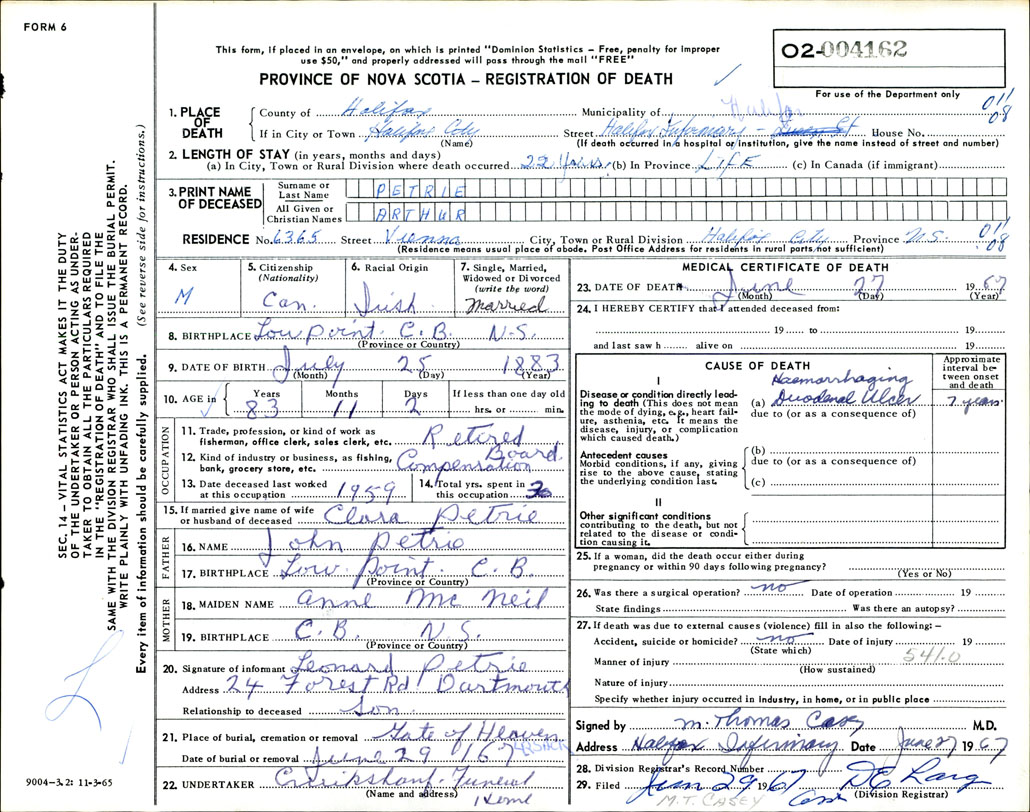 FORM 6
This form, if placed in an envelope, on which is printed "Dominion Statistics – Free, penalty for improper
use $50," and properly addressed will pass through the mail "FREE"
PROVINCE OF NOVA SCOTIA – REGISTRATION OF DEATH
02-004162
For use of the Department only
1. PLACE OF DEATH
County of Halifax Municipality of Halifax 011
If in City or Town Halifax City Street Halifax Infirmary – Queen St House No. 08
(Name) (If death occurred in a hospital or institution, give the name instead of street and number)
2. LENGTH OF STAY (in years, months and days)
(a) In City, Town or Rural Division where death occurred 22 years (b) In Province LIFE (c) In Canada (if immigrant)
3. PRINT NAME OF DECEASED
Surname or Last Name PETRIE
All Given or Christian Names ARTHUR
RESIDENCE No. 6365 Street Vienna City, Town or Rural Division Halifax City Province N.S. 011 08
(Residence means usual place of abode. Post Office Address for residents in rural parts not sufficient)
4. Sex M
5. Citizenship (Nationality) Can.
6. Racial Origin Irish
7. Single, Married, Widowed or Divorced (write the word) Married
8. BIRTHPLACE Low point C.B. N.S.
(Province or Country)
9. DATE OF BIRTH July 25 1883
(Month) (Day) (Year)
10. AGE in Years 83 Months 11 Days 2 If less than one day old hrs. or min.
OCCUPATION
11. Trade, profession, or kind of work as fisherman, office clerk, sales clerk, etc. Retired
12. Kind of industry or business, as fishing, bank, grocery store, etc. Compensation Board
13. Date deceased last worked at this occupation 1959
14. Total yrs. spent in this occupation 30
15. If married give name of wife or husband of deceased Clara Petrie
FATHER
16. NAME John Petrie
17. BIRTHPLACE Low Point C.B
(Province or Country)
MOTHER
18. MAIDEN NAME Anne McNeil
19. BIRTHPLACE C.B. N.S.
(Province or Country)
20. Signature of informant Leonard Petrie
Address 24 Forest Rd Dartmouth
Relationship to deceased Son
21. Place of burial, cremation or removal Gate of Heaven
Date of burial or removal June 29 1967
22. UNDERTAKER Cruikshank Funeral Home
(Name and address)
MEDICAL CERTIFICATE OF DEATH
23. DATE OF DEATH June 27 1967
(Month) (Day) (Year)
24. I HEREBY CERTIFY that I attended deceased from:
19 to 19
and last saw h alive on 19
CAUSE OF DEATH
Approximate interval between onset and death
I
Disease or condition directly leading to death (This does not mean the mode of dying, e.g., heart failure, asthenia, etc. It means the disease, injury, or complication which caused death.)
(a) Haemorrhaging Duodenal Ulcer 7 years
due to (or as a consequence of)
Antecedent causes
Morbid conditions, if any, giving rise to the above cause, stating the underlying condition last.
(b)
due to (or as a consequence of)
(c)
II
Other significant conditions
contributing to the death, but not related to the disease or condition causing it.
25. If a woman, did the death occur either during
pregnancy or within 90 days following pregnancy?
(Yes or No)
26. Was there a surgical operation? no Date of operation 19
State findings Was there an autopsy?
27. If death was due to external causes (violence) fill in also the following:–
Accident, suicide or homicide? no Date of injury 19
(State which) 541.0
Manner of injury
(How sustained)
Nature of injury
Specify whether injury occurred in industry, in home, or in public place
Signed by M. Thomas Casey M.D.
Address Halifax Infirmary Date June 27 1967
28. Division Registrar's Record Number
29. Filed June 29 1967
(Division Registrar)
M.T. CASEY
SEC. 14 – VITAL STATISTICS ACT MAKES IT THE DUTY
OF THE UNDERTAKER OR PERSON ACTING AS UNDER-
TAKER TO OBTAIN ALL THE PARTICULARS REQUIRED
IN THE "REGISTRATION OF DEATH" AND TO FILE THE
SAME WITH THE DIVISION REGISTRAR WHO SHALL ISSUE THE BURIAL PERMIT.
WRITE PLAINLY WITH UNFADING INK. THIS IS A PERMANENT RECORD.
Every item of information should be carefully supplied. (See reverse side for instructions.)
9004-3.2: 11-3-65